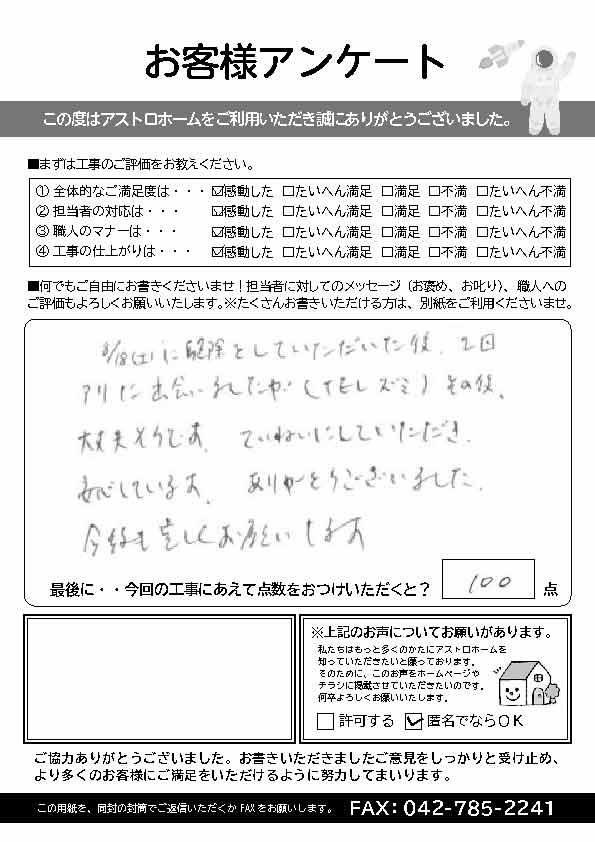 お客様アンケート
この度はアストロホームをご利用いただき誠にありがとうございました。
■まずは工事のご評価をお教えください。
①全体的なご満足度は・・・ ☑感動した □たいへん満足 □満足 □不満 □たいへん不満
②担当者の対応は・・・ ☑感動した □たいへん満足 □満足 □不満 □たいへん不満
③職人のマナーは・・・ ☑感動した □たいへん満足 □満足 □不満 □たいへん不満
④工事の仕上がりは・・・ ☑感動した □たいへん満足 □満足 □不満 □たいへん不満
■何でもご自由にお書きくださいませ！担当者に対してのメッセージ（お褒め、お叱り）、職人への
ご評価もよろしくお願いいたします。※たくさんお書きいただける方は、別紙をご利用くださいませ。
8/18(土)に駆除をしていただいた後、2回
アリに出会いましたが(イエしズミ)その後、
大丈夫そうです。ていねいにしていただき、
安心しています。ありがとうございました。
今後も宜しくお願いします
最後に・・今回の工事にあえて点数をおつけいただくと？ 100 点
※上記のお声についてお願いがあります。
私たちはもっと多くのかたにアストロホームを
知っていただきたいと願っております。
そのために、このお声をホームページや
チラシに掲載させていただきたいのです。
何卒よろしくお願いいたします。
□許可する ☑匿名でならOK
ご協力ありがとうございました。お書きいただきましたご意見をしっかりと受け止め、
より多くのお客様にご満足をいただけるように努力してまいります。
この用紙を、同封の封筒でご返信いただくかFAXをお願いします。 FAX：042-785-2241